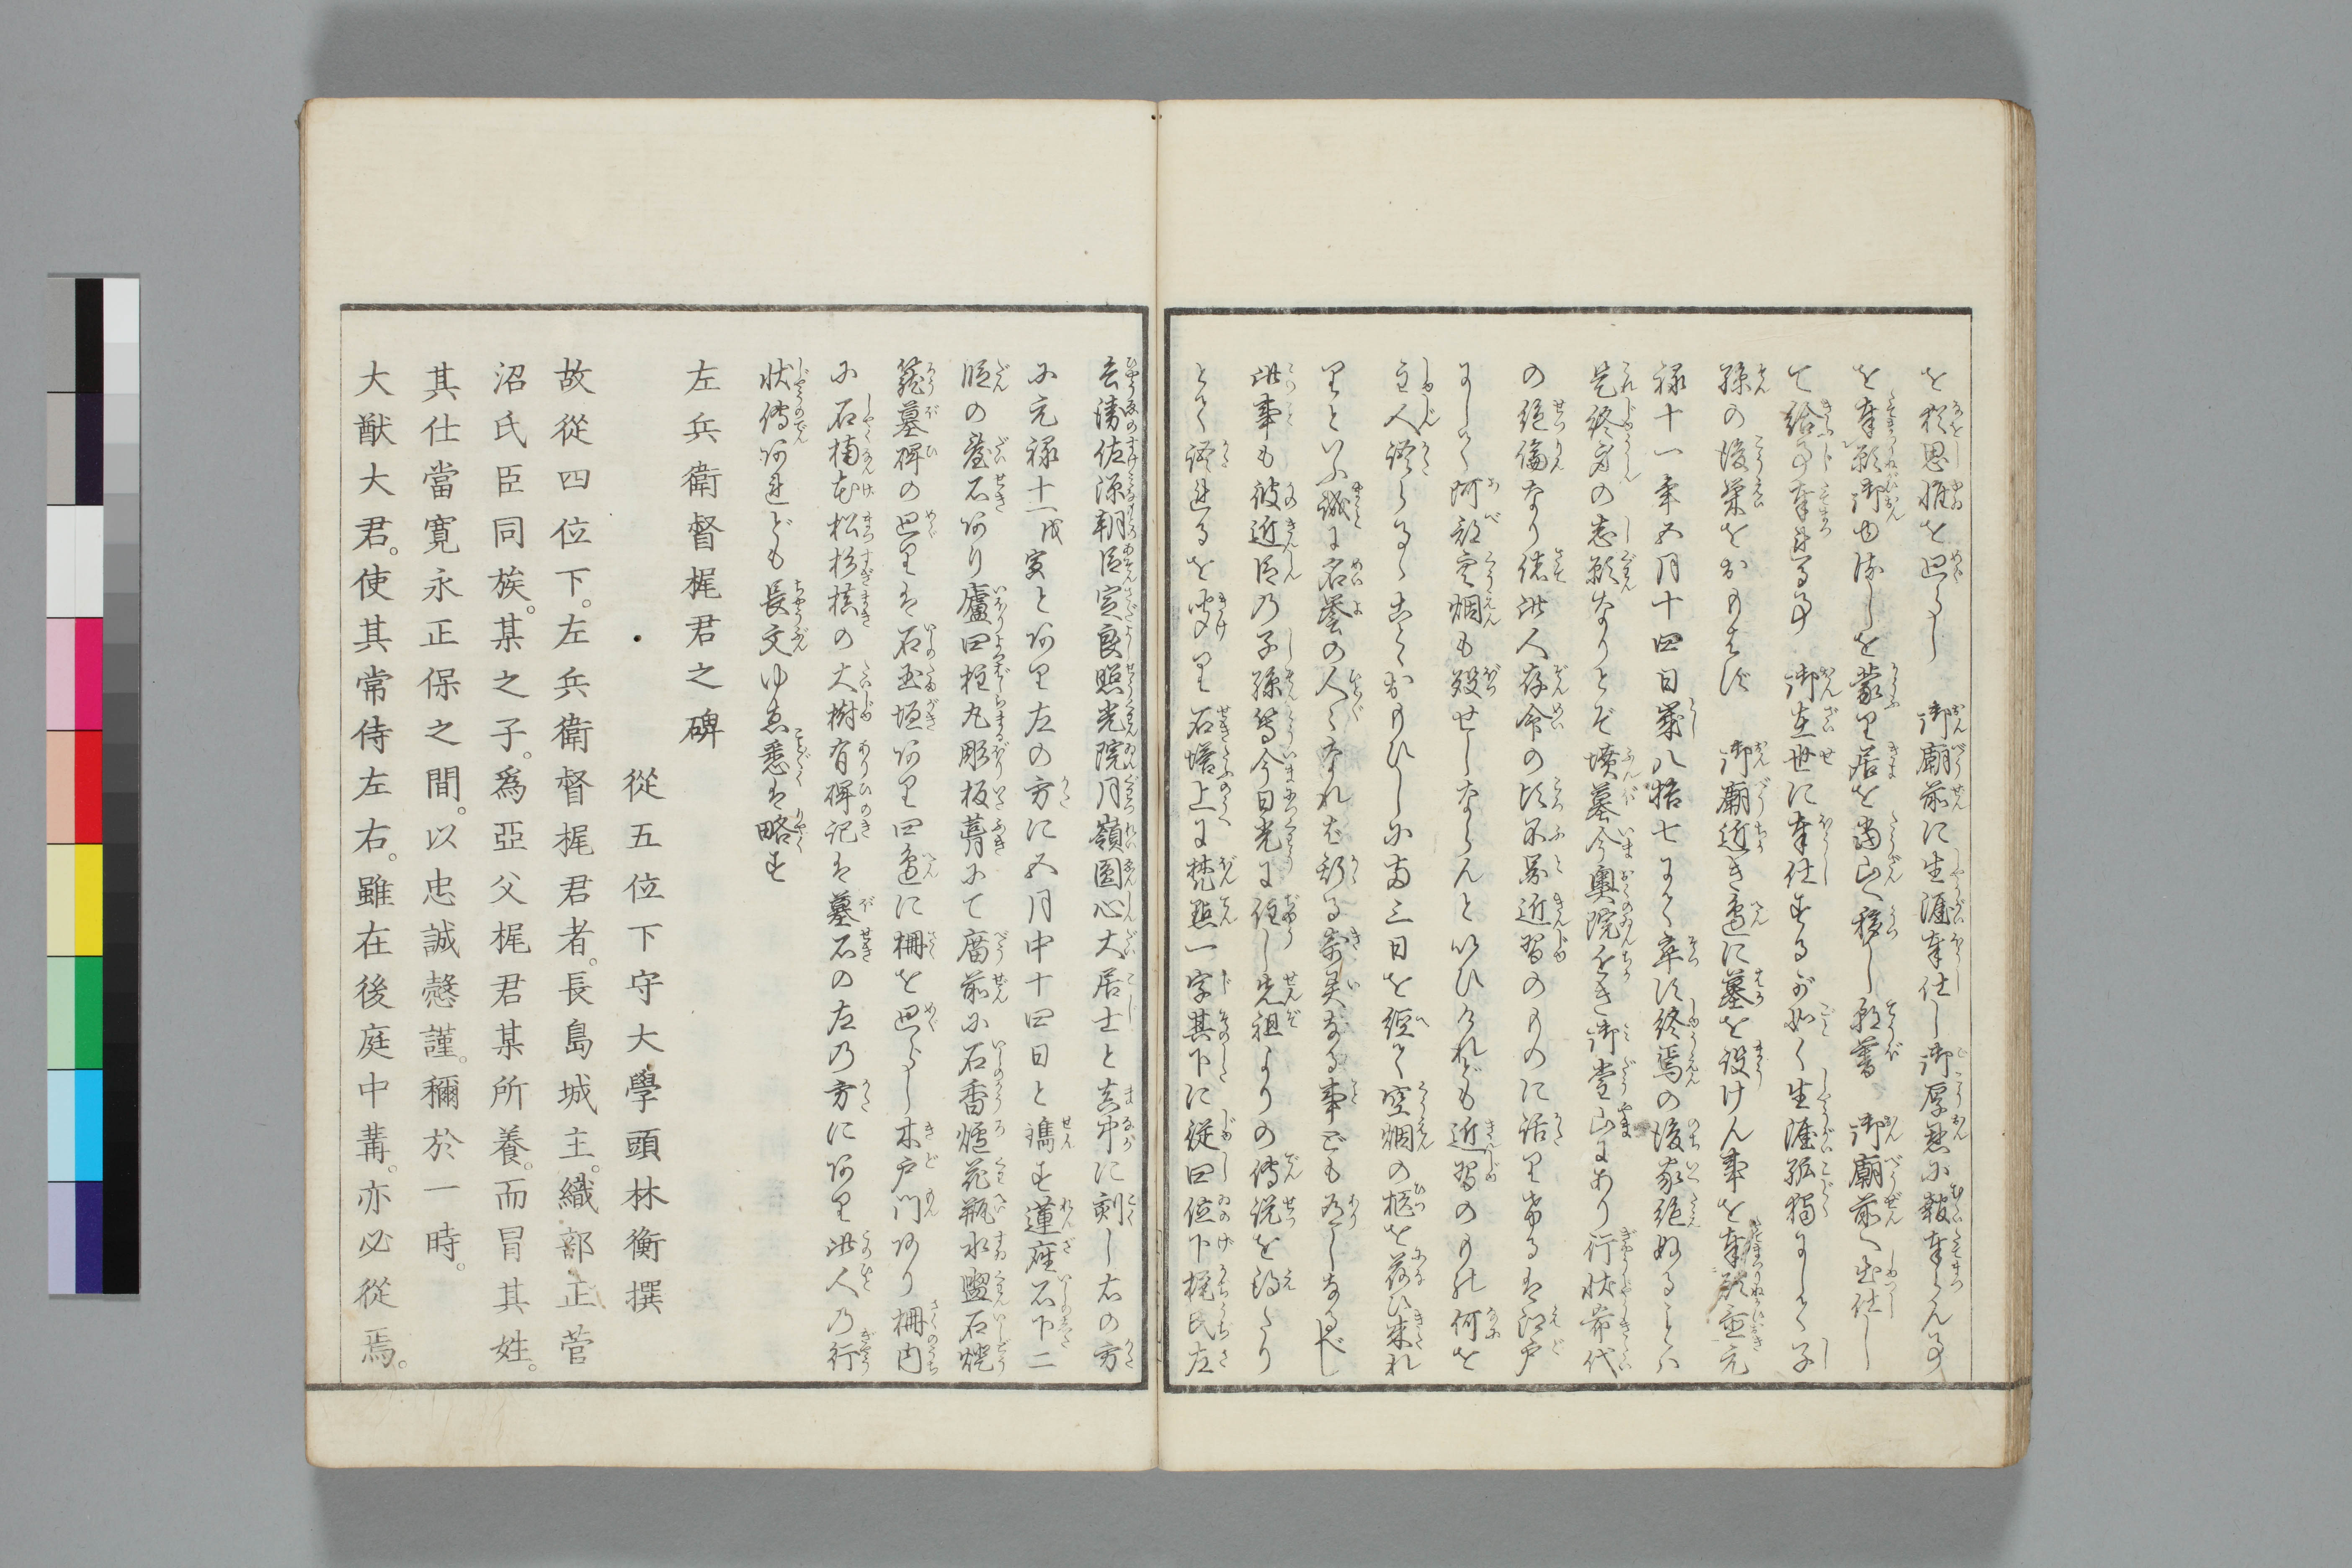 を猶思惟を廻らし　御廟前に生涯奉仕し御厚恩に報奉らん事
を奉願御ゆるしを蒙り居を当山へ移し剃髪　御廟前へ出仕し
て給事奉れる事　御在世に奉仕するが如く生涯孤独にして子
孫の後栄をおもはず　御廟近き辺に墓を設けん事を奉願置元
禄十一年五月十四日歳八拾七にて卒す終焉の後家絶ぬることハ
是終身の志願なりとぞ墳墓今奥院ちかき御堂山にあり行状希代
の絶倫なり偖此人存命の比不図近習のものに語り けるは江戸
にしては阿部空烟も歿せしならんといひけれども近習のもの何を
主人語らるゝとおもひしに両三日を経て空烟の柩を荷ひ来れ
りといふ誠に名誉の人々なればかゝる奇異なる事ども有しなるべし
此事も彼近臣の子孫等今日光に住し先祖よりの伝説を得たり
とて語れるを聞けり石塔上に梵点一字其下に従四位下梶氏左
兵衛佐源朝臣定良照光院月嶺圓心大居士と真中に刻し右の方
に元禄十一戊寅とあり左の方に五月中十四日と鐫す蓮座石下二
段の台石あり廬四柱丸彫板葺にて廟前に石香炉花瓶水盥石燈
籠墓碑の廻りは石玉垣あり四辺に柵を廻らし木戸門あり柵内
に石楠花松杉槙の大樹有碑記は墓石の左の方にあり此人の行
状伝あれども長文ゆゑ悉は略す
左兵衛督梶君之碑
從五位下守大學頭林衡撰
故從四位下。左兵衛督梶君者。長島城主。織部正菅
沼氏臣同族。某之子。爲亞父梶君某所養。而冒其姓。
其仕當寛永正保之間。以忠誠愨謹。穪於一時。
大猷大君。使其常侍左右。雖在後庭中冓。亦必從焉。